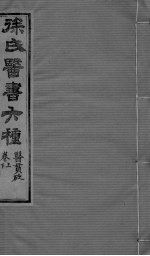 徐氏醫書六種
醫貫砭
卷上下